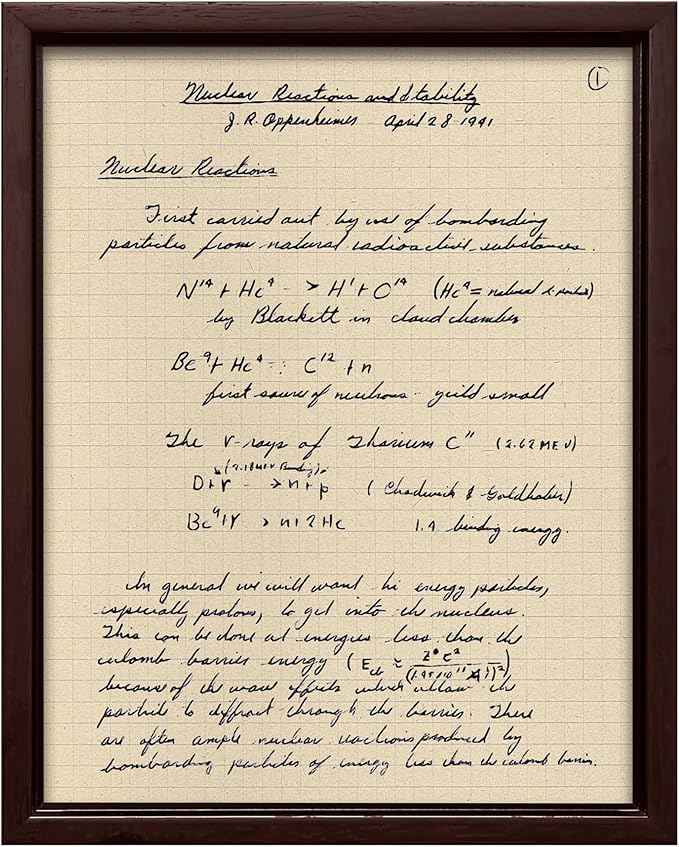 ①
Nuclear Reactions and Stability
J. R. Oppenheimer April 28 1941
Nuclear Reactions
First carried out by use of bombarding
particles from natural radioactive substances.
N¹⁴ + He⁴ -> H¹ + O¹⁷ (He⁴ = natural α particle)
by Blackett in cloud chamber
Be⁹ + He⁴ -: C¹² + n
first source of neutrons yield small
The γ-rays of Thorium C" (2.62 MEV)
(2.18 MEV Binding)
D + γ -> n + p (Chadwick & Goldhaber)
Be⁹ + γ > n + 2He 1.7 binding energy.
In general we will want hi energy particles,
especially protons, to get into the nucleus.
This can be done at energies less than the
culomb barrier energy (
because of the wave effects which allow the
particle to diffract through the barrier. There
are often ample nuclear reactions produced by
bombarding particles of energy less than the culomb barrier.